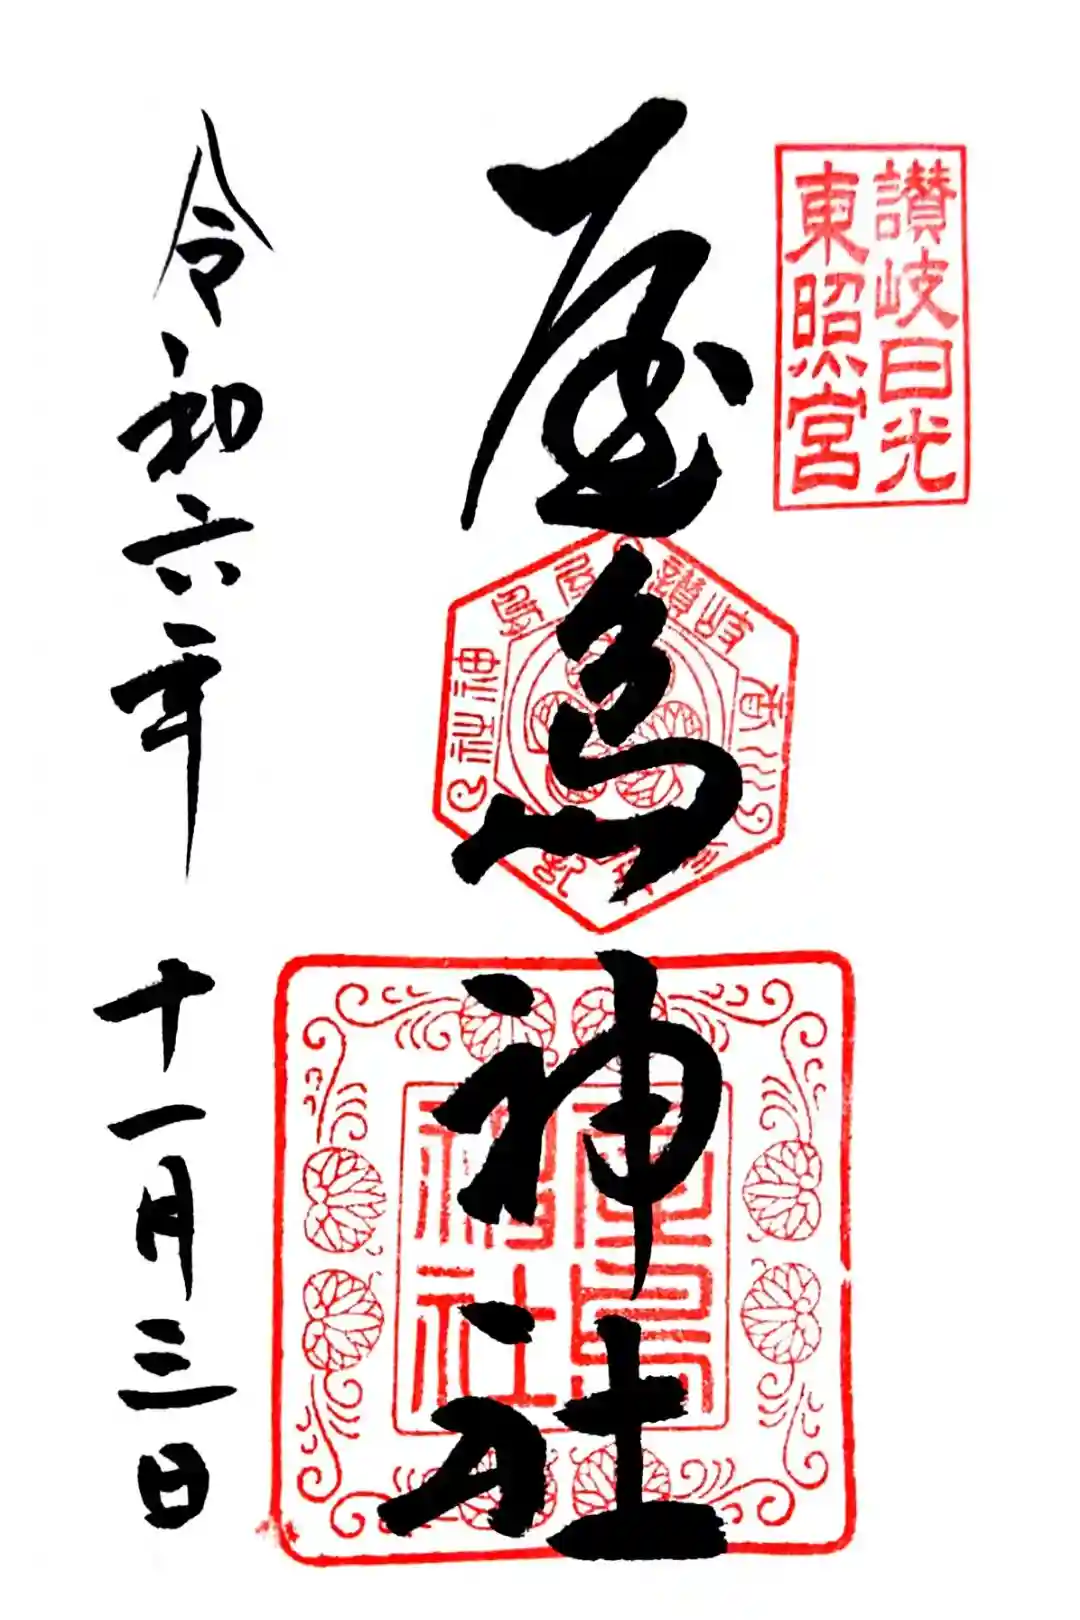 讃岐日光
東照宮
屋島神社
讃岐
屋島
神社
香川
屋島
神社
令和六年 十一月三日